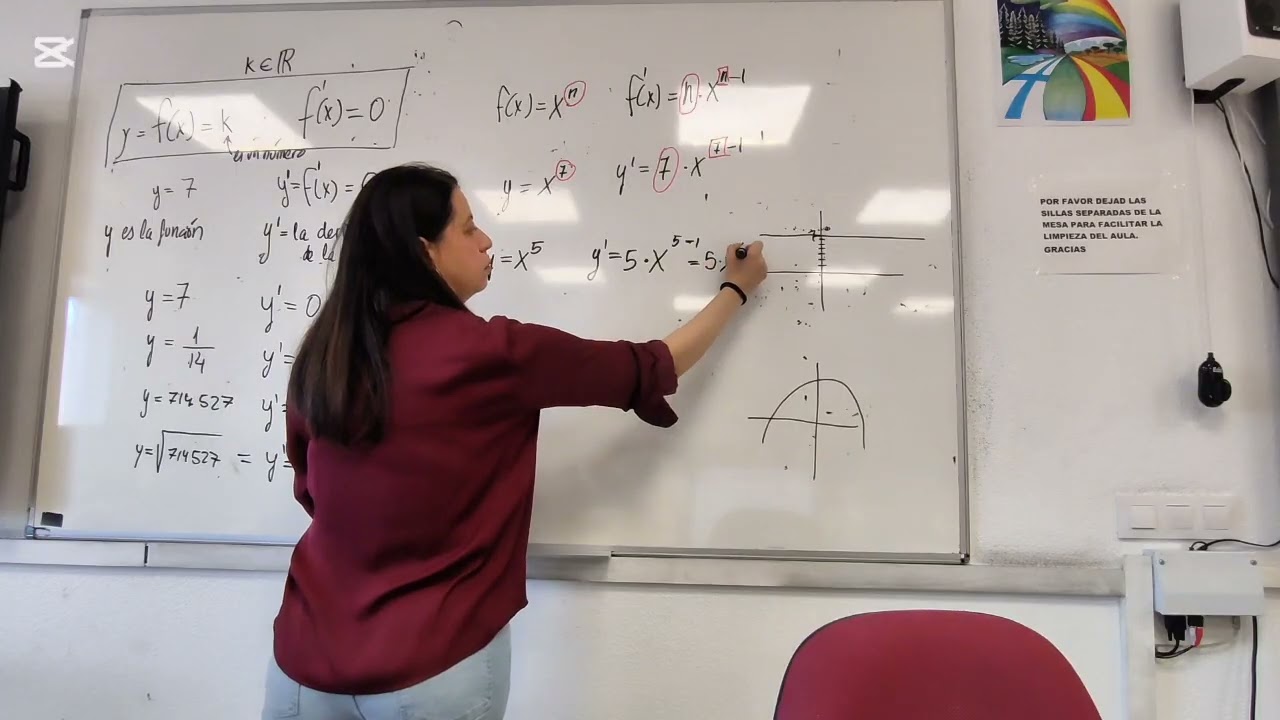 k∈ℝ
y = f(x) = k f'(x) = 0
es un número
y = 7 y' = f'(x) =
y es la función y' = la
de
y = 7 y' = 0
y = 1/14 y' =
y = 714527 y'
y = √714527 = y'
f(x) = x^n f'(x) = n · x^(n-1)
y = x^7 y' = 7 · x^(7-1)
= x^5 y' = 5 · x^(5-1) = 5 ·
POR FAVOR DEJAD LAS
SILLAS SEPARADAS DE LA
MESA PARA FACILITAR LA
LIMPIEZA DEL AULA.
GRACIAS